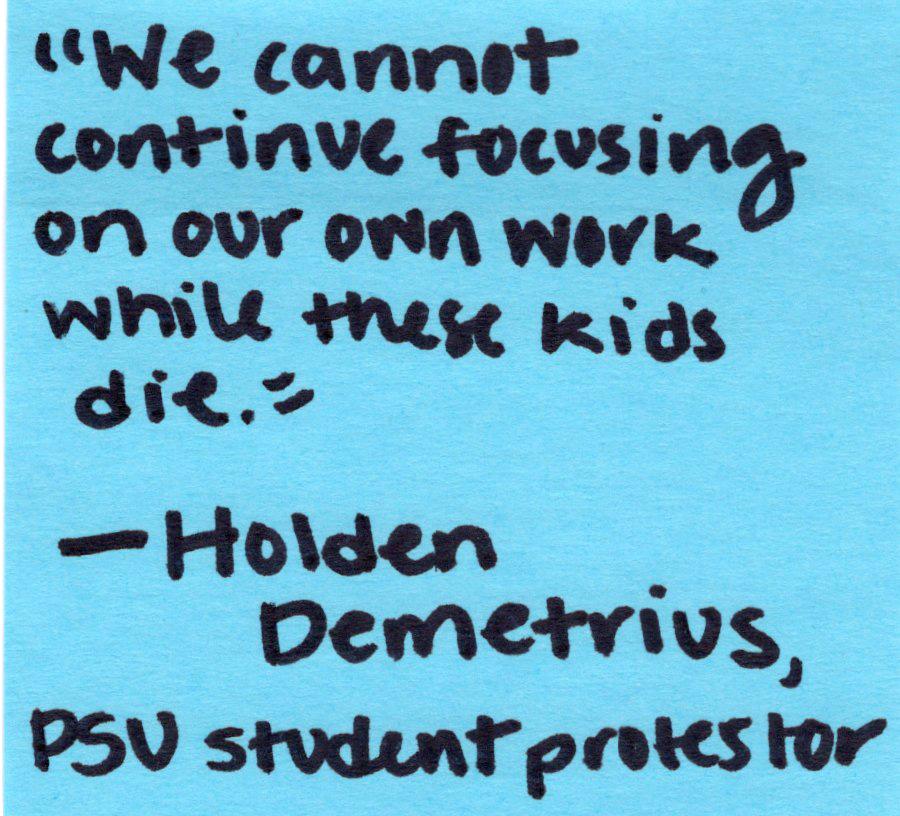 "We cannot
continue focusing
on our own work
while these kids
die."
—Holden
Demetrius,
PSU student protestor